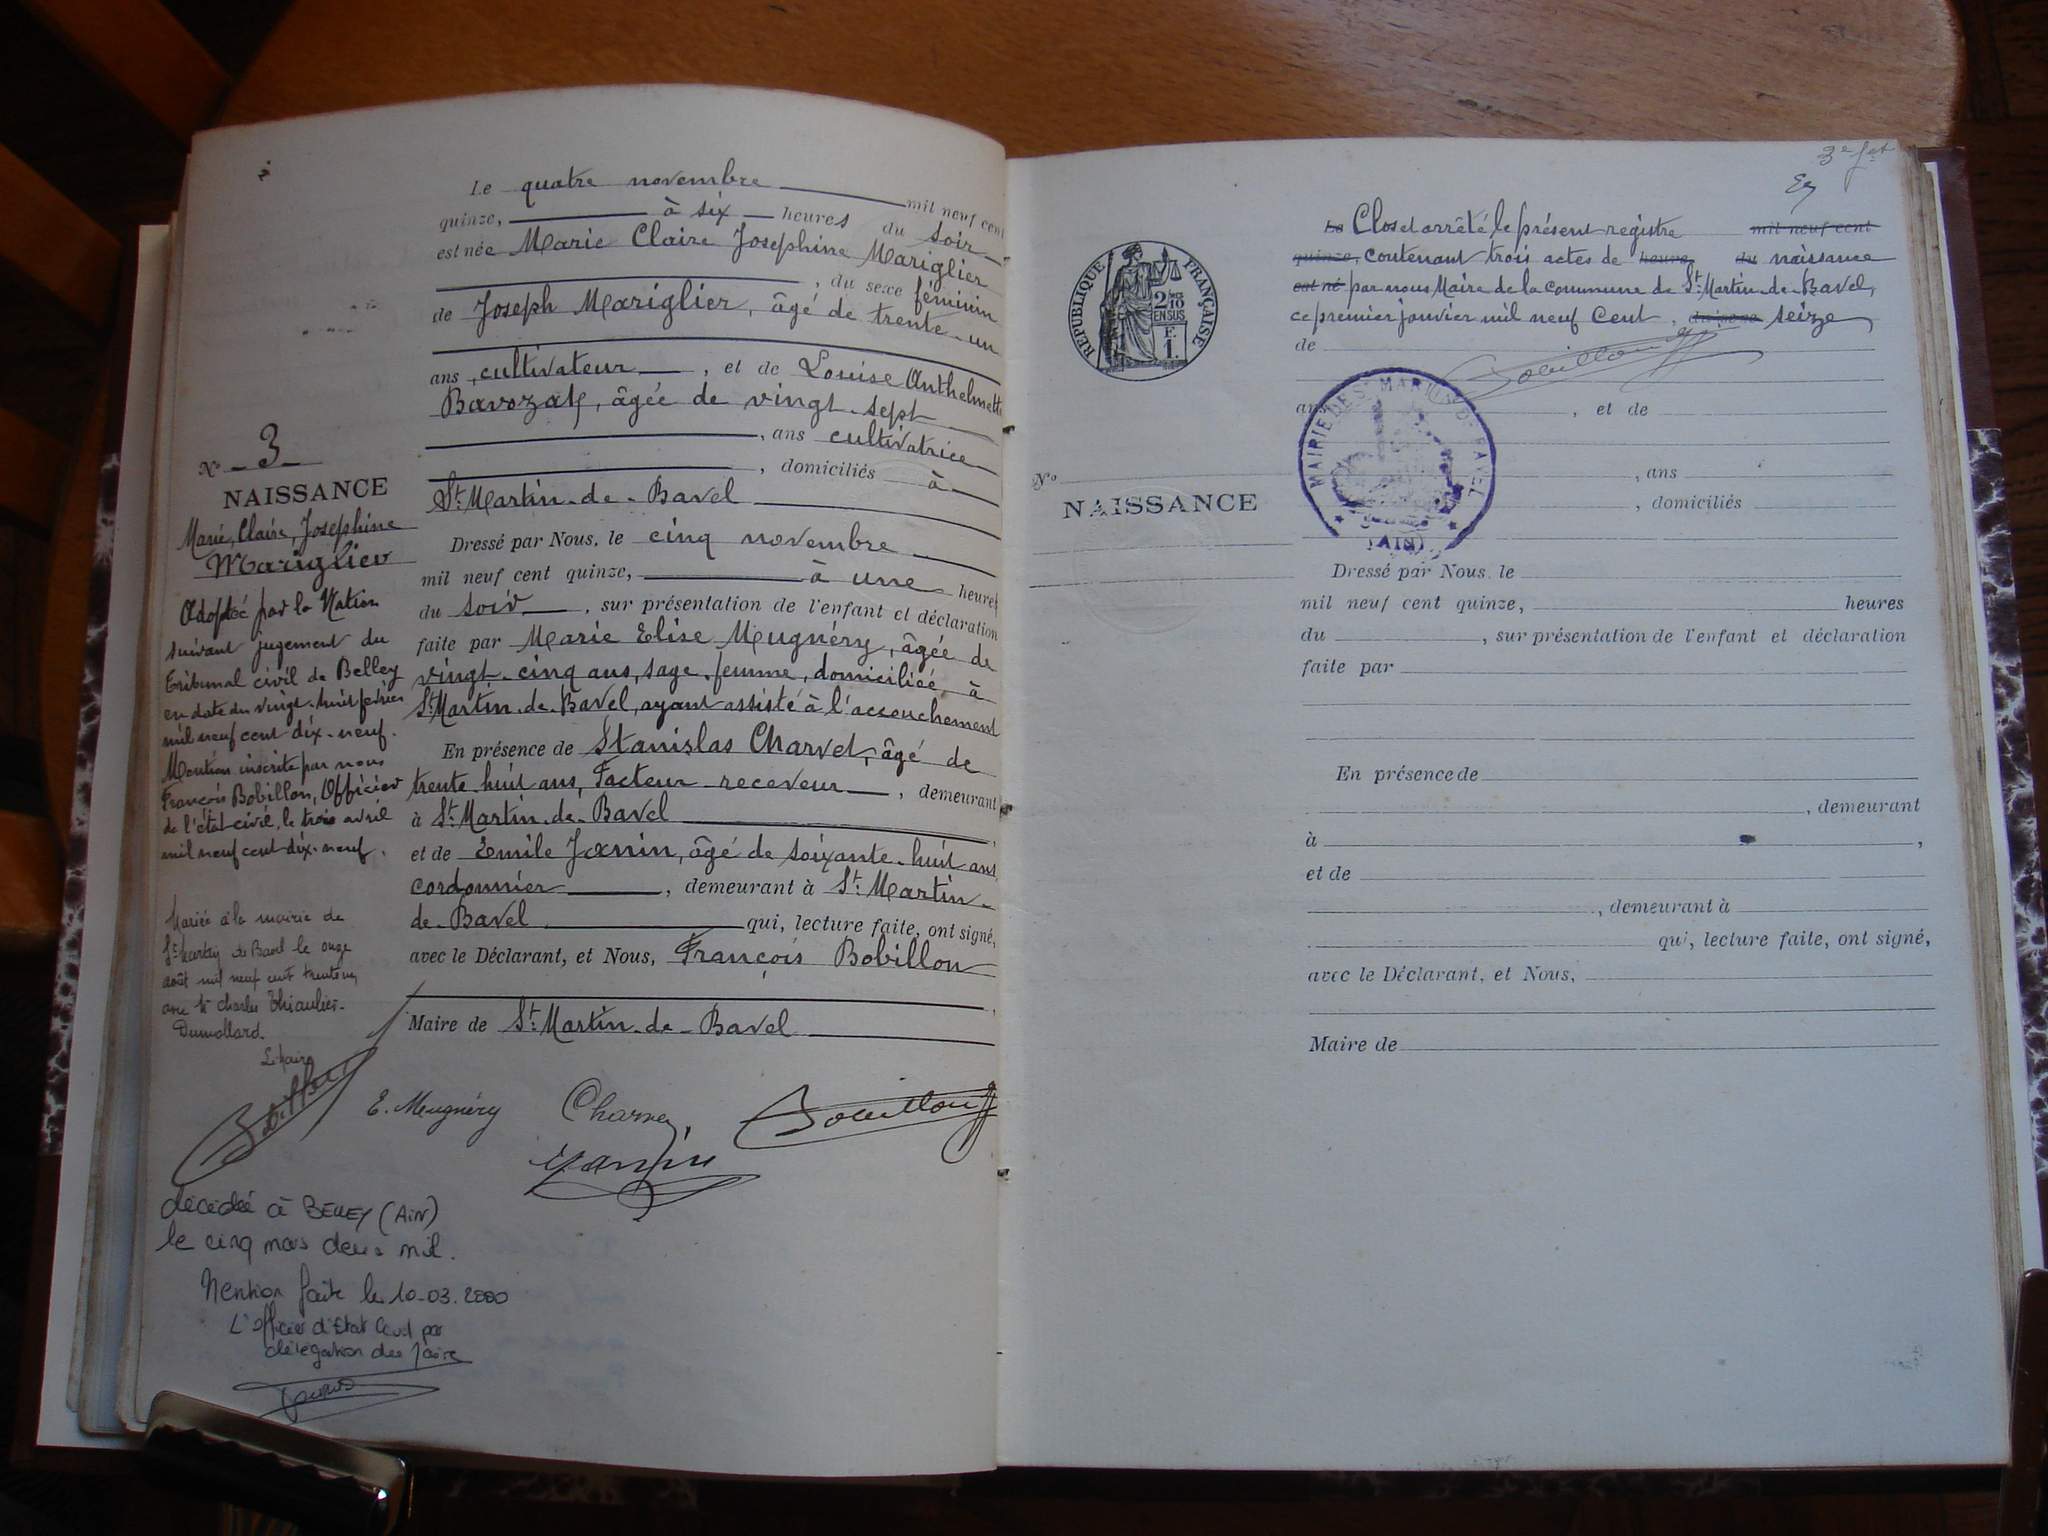 Le quatre novembre mil neuf cent
quinze, à six heures du soir
est née Marie Claire Josephine Mariglier
, du sexe féminin
de Joseph Mariglier, âgé de trente-un
ans, cultivateur, et de Louise Anthelmette
Bavozat, âgée de vingt-sept
, ans cultivatrice
, domiciliés à
St. Martin-de-Bavel
Dressé par Nous, le cinq novembre
mil neuf cent quinze, à une heures
du soir, sur présentation de l'enfant et déclaration
faite par Marie Elise Mugnéry, âgée de
vingt-cinq ans, sage-femme, domiciliée à
St. Martin-de-Bavel, ayant assisté à l'accouchement
En présence de Stanislas Charvet, âgé de
trente-huit ans, Facteur-receveur, demeurant
à St. Martin-de-Bavel,
et de Emile Janin, âgé de soixante-huit ans
cordonnier, demeurant à St. Martin-
de-Bavel qui, lecture faite, ont signé,
avec le Déclarant, et Nous, François Bobillon
,
Maire de St. Martin-de-Bavel
E. Mugnéry Charvet Bobillon
Janin
No 3
NAISSANCE
Marie, Claire, Josephine
Mariglier
Adoptée par la Nation
suivant jugement du
Tribunal civil de Belley
en date du vingt-huit février
mil neuf cent dix-neuf.
Mention inscrite par nous
François Bobillon, Officier
de l'état civil, le trois avril
mil neuf cent dix-neuf.
Mariée à la mairie de
St Martin de Bavel le onze
août mil neuf cent trente
avec Charles
Dumollard.
Le Maire
décédée à BELLEY (AiN)
le cinq mars deux mil.
Mention faite le 10-03.2000
L'officier d'Etat Civil par
délégation du Maire
3e
REPUBLIQUE FRANÇAISE
2/10es
EN SUS
F.
1.
Le Clos et arrêté le présent registre mil neuf cent
quinze, contenant trois actes de heures du naissance
est né par nous Maire de la commune de St. Martin-de-Bavel,
ce premier janvier mil neuf cent, du sexe seize
de
Bobillon
MAIRIE DE ST MARTIN DE BAVEL
(AIN)
ans, et de
, ans
, domiciliés
No
NAISSANCE
Dressé par Nous, le
mil neuf cent quinze, heures
du, sur présentation de l'enfant et déclaration
faite par
En présence de
, demeurant
à,
et de
, demeurant à
qui, lecture faite, ont signé,
avec le Déclarant, et Nous,
Maire de